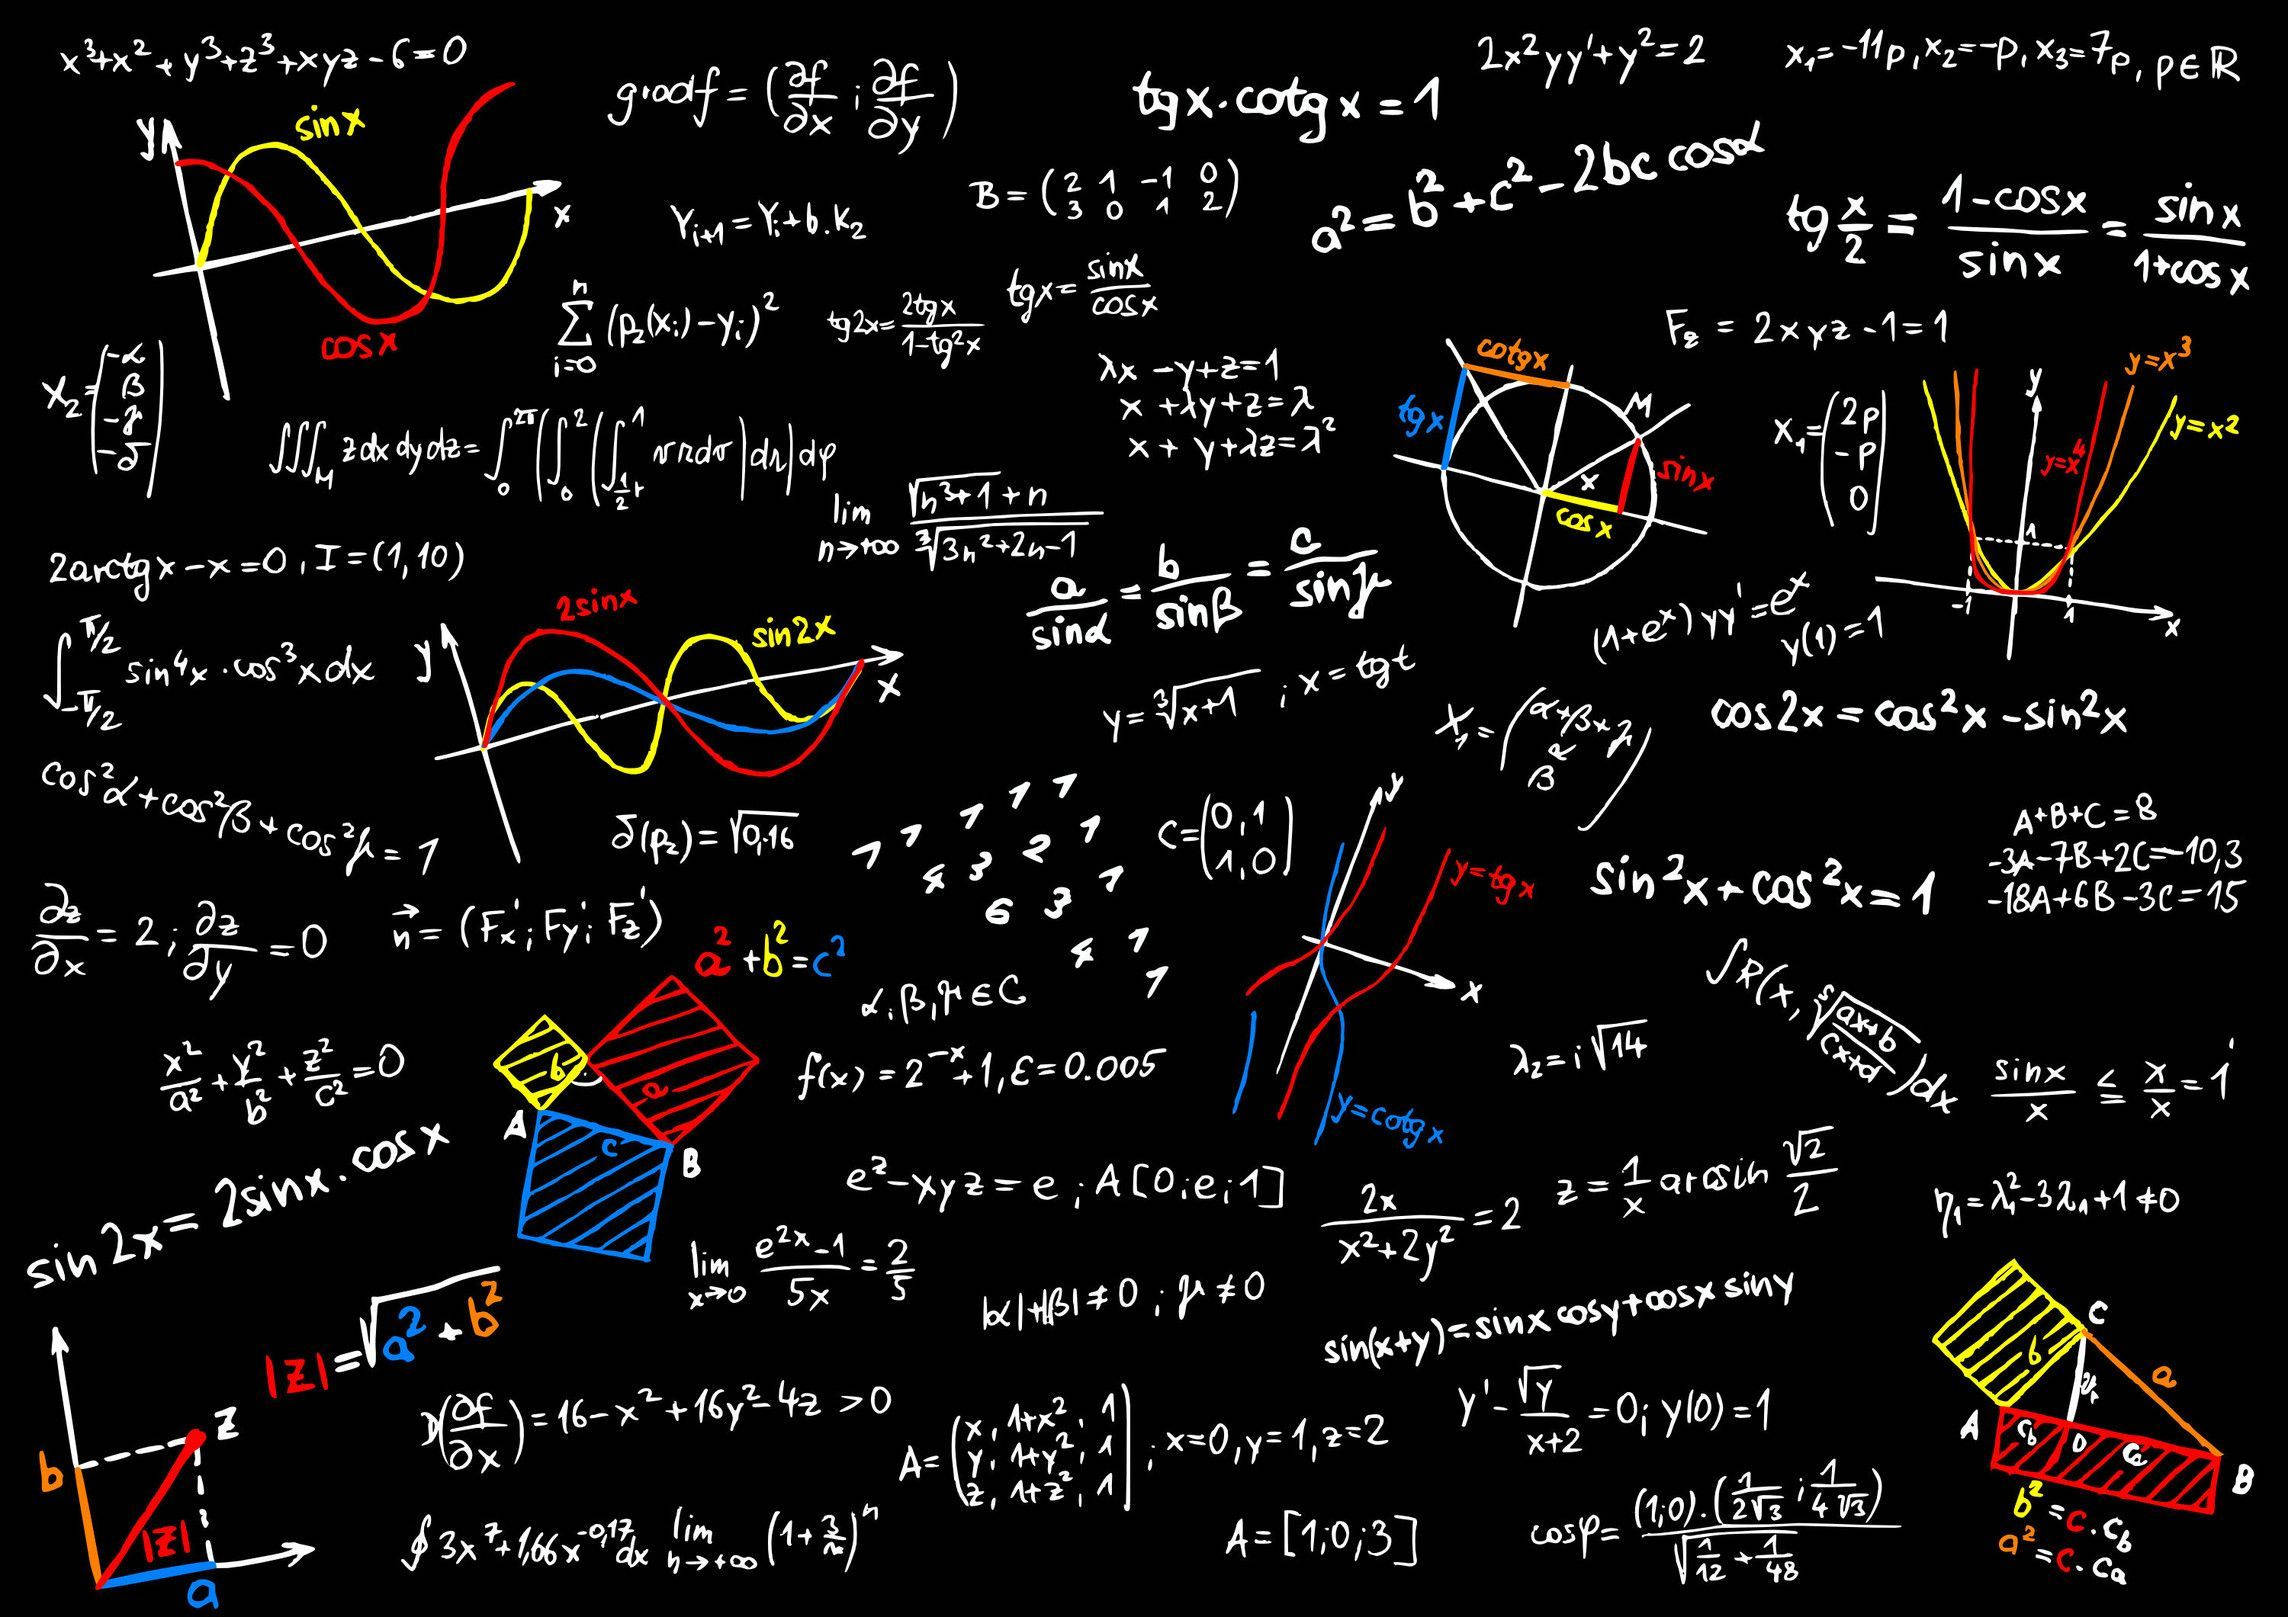 x³+x²+y³+z³+xyz-6=0
gradf = (∂f/∂x ; ∂f/∂y)
tgx·cotgx = 1
2x²yy'+y²=2
x₁=-11p, x₂=-p, x₃=7p, p∈ℝ
y
sin x
x
cos x
B = (2 1 -1 0
3 0 1 2)
a² = b²+c²-2bc cosα
tg x/2 = 1-cosx/sinx = sinx/1+cosx
Yᵢ₊₁ = Yᵢ+b.K₂
tgx = sinx/cosx
∑ⁿᵢ₌₀ (p₂(xᵢ)-yᵢ)²
tg2x = 2tgx/1-tg²x
F₂ = 2xyz-1=1
X₂=(-α
β
-γ
-δ)
λx -y+z=1
x +λy+z=λ
x + y+λz=λ²
cotgx
tgx
M
sinx
x
cosx
X₁=(2p
-p
0)
y
y=x³
y=x²
y=x⁴
1
-1
1
x
∭_M z dx dy dz =
lim n→+∞ √n³+1+n/∛3n²+2n-1
2arctgx-x=0, I=(1,10)
a/sinα = b/sinβ = c/sinγ
(1+eˣ)yy'=eˣ
y(1)=1
∫ π/2 -π/2 sin⁴x·cos³x dx
y
2sinx
sin2x
x
y=∛x+1 ; x=tgt
X₁=(α+β+γ
α
β)
cos2x = cos²x-sin²x
cos²α+cos²β+cos²γ=1
δ(p₂)=√0,16
1 1 1 1 1
4 3 2 1
6 3 1
4 1
1
C=(0,1
1,0)
y
y=tgx
x
y=cotgx
A+B+C=8
-3A-7B+2C=-10,3
-18A+6B-3C=15
sin²x+cos²x=1
∂z/∂x = 2 ; ∂z/∂y = 0
n⃗ = (Fx' ; Fy' ; Fz')
a²+b²=c²
b
a
A
c
B
α,β,γ∈C
∫R(x, ⁵√ax+b/cx+d)dx
x²/a²+y²/b²+z²/c²=0
f(x)=2⁻ˣ+1, ε=0.005
λ₂=i√14
sinx/x ≤ x/x = 1
sin2x=2sinx·cosx
eᶻ-xyz=e ; A[0;e;1]
2x/x²+2y²=2
z=1/x arcsin √2/2
η₁=λ₁²-3λ₁+1≠0
lim x→0 e²ˣ-1/5x=2/5
|α|+|β|≠0 ; γ≠0
sin(x+y)=sinx cosy+cosx siny
|z|=√a²+b²
z
b
|z|
a
D(∂f/∂x)=16-x²+16y²-4z >0
A=(x, 1+x², 1
y, 1+y², 1
z, 1+z², 1) ; x=0, y=1, z=2
y'-√y/x+2=0; y(0)=1
C
b
a
A
cb
D
ca
B
b²=c·cb
a²=c·ca
∮3x⁷+1,66x⁻⁰'¹⁷dx
lim n→+∞ (1+3/n)ⁿ
A=[1;0;3]
cosφ=(1;0)·(1/2√3 ; 1/4√3)/√1/12+1/48